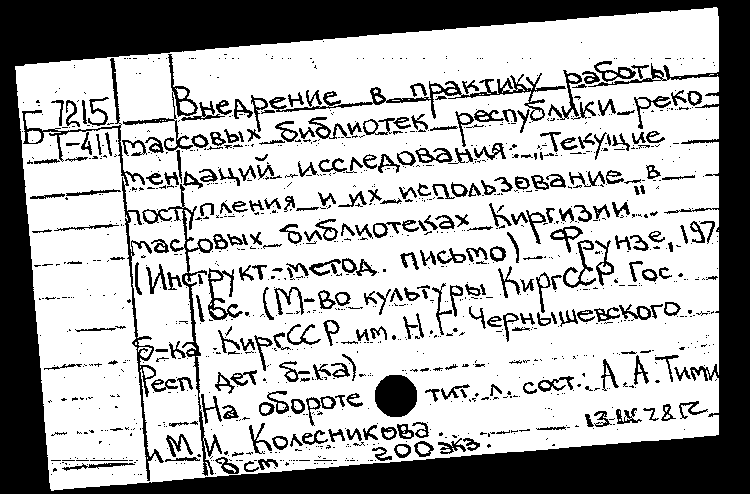 Б 7215
Т-411
Внедрение в практику работы
массовых библиотек республики реко-
мендаций исследования: „Текущие
поступления и их использование в
массовых библиотеках Киргизии".
(Инструкт.-метод. письмо) Фрунзе, 197
16с. (М-во культуры КиргССР. Гос.
б-ка КиргССР им. Н.Г. Чернышевского.
Респ. дет. б-ка)
На обороте тит. л. сост.: А.А. Тими
и М.И. Колесникова.
18 cm. 200 экз.